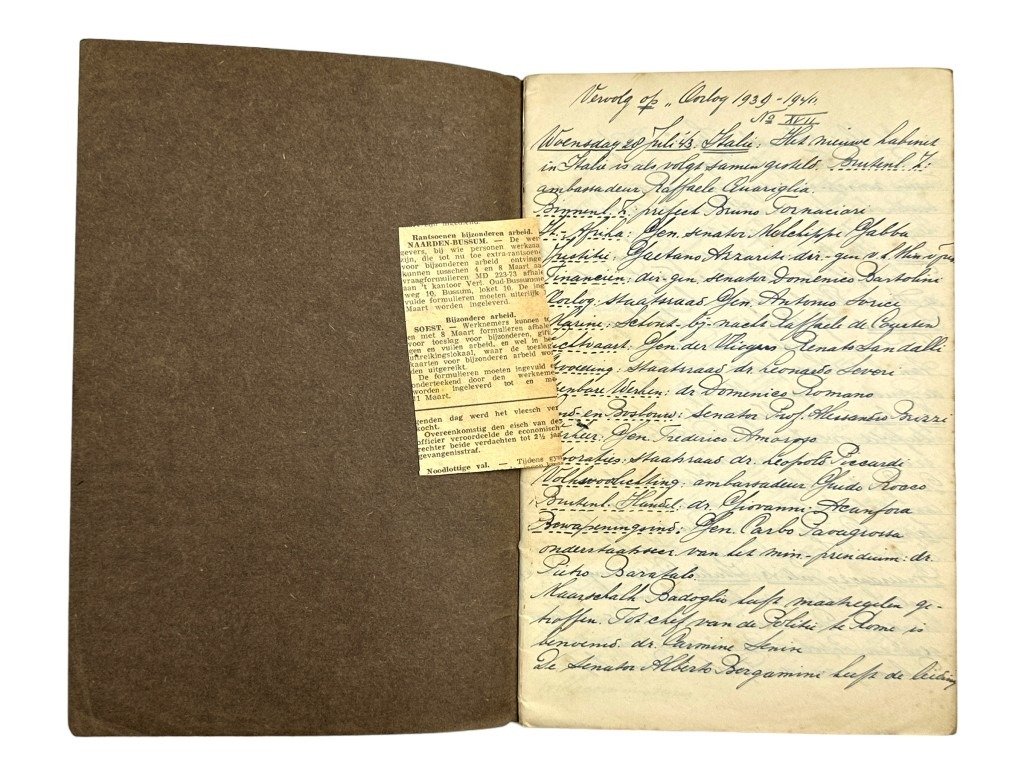 Rantsoenen bijzonderen arbeid.
NAARDEN-BUSSUM. — De wer
gevers, bij wie personen werkzaa
zijn, die tot nu toe extra-rantsoen
voor bijzonderen arbeid ontvinge
kunnen tusschen 4 en 8 Maart aa
vraagformulieren MD 223-73 afhale
aan 't kantoor Verl. Oud-Bussumme
weg 10, Bussum, loket 10. De ing
vulde formulieren moeten uiterlijk
Maart worden ingeleverd.
Bijzondere arbeid.
SOEST. — Werknemers kunnen t
en met 8 Maart formulieren afhale
voor toeslag voor bijzonderen, gift
gen en vuilen arbeid, en wel in he
uitreikingslokaal, waar de toeslag
kaarten voor bijzonderen arbeid wor
den uitgereikt.
De formulieren moeten ingevuld e
onderteekend door den werkneme
worden ingeleverd tot en me
11 Maart.
genden dag werd het vleesch ver
kocht.
Overeenkomstig den eisch van de
officier veroordeelde de economisch
rechter beide verdachten tot 2½ jaar
gevangenisstraf.
Noodlottige val. — Tijdens gym
Vervolg op „Oorlog 1939-1940.
No XVII
Woensdag 28 Juli 43. Italië: Het nieuwe kabinet
in Italië is als volgt samen gesteld. Buitenl. Z:
ambassadeur Raffaele Quariglia.
Binnenl. Z: prefect Bruno Fornaciari
It.-Afrika: Gen. senator Melchippe Gabba
Justitie: Gaetano Azzariti dir.-gen v.d.
Financien: dir-gen. senator Domenico Bartolini
Oorlog: staatsraad Gen. Antonio Sorice
Marine: Schout-bij-nacht Raffaele de Courten
Luchtvaart: Gen der Vliegers Renato Sandalli
voeding: staatsraad dr Leonardo Severi
enbare Werken: dr Domenico Romano
en Boschbouw: senator Prof. Alessandro Brizzi
rkeer: Gen. Frederico Amoroso
poraties: staatsraad dr. Leopold Piccardi
Volksvoorlichting: ambassadeur Guido Rocco
Buitenl. Handel: dr. Giovanni Acanfora
Bewapeningsind: Gen. Carbo Favagrossa
onderstaatssecr van het min.-presidium: dr.
Pietro Baratalo.
Maarschalk Badoglio heeft maatregelen ge-
troffen. Tot chef van de Politie te Rome is
benoemd dr. Carmine Senise
De Senator Alberto Bergamini heeft de leiding